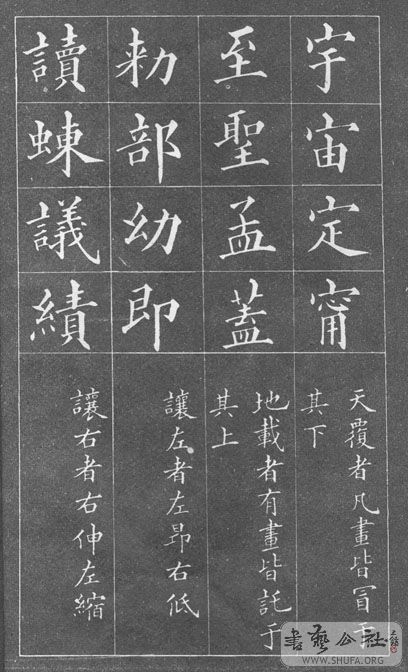 宇宙定甯
天覆者凡畫皆冒于
其下
至聖孟蓋
地載者有畫皆託于
其上
勑部幼即
讓左者左昂右低
讀蝀議績
讓右者右伸左縮
書藝公社
WWW.SHUFA.ORG